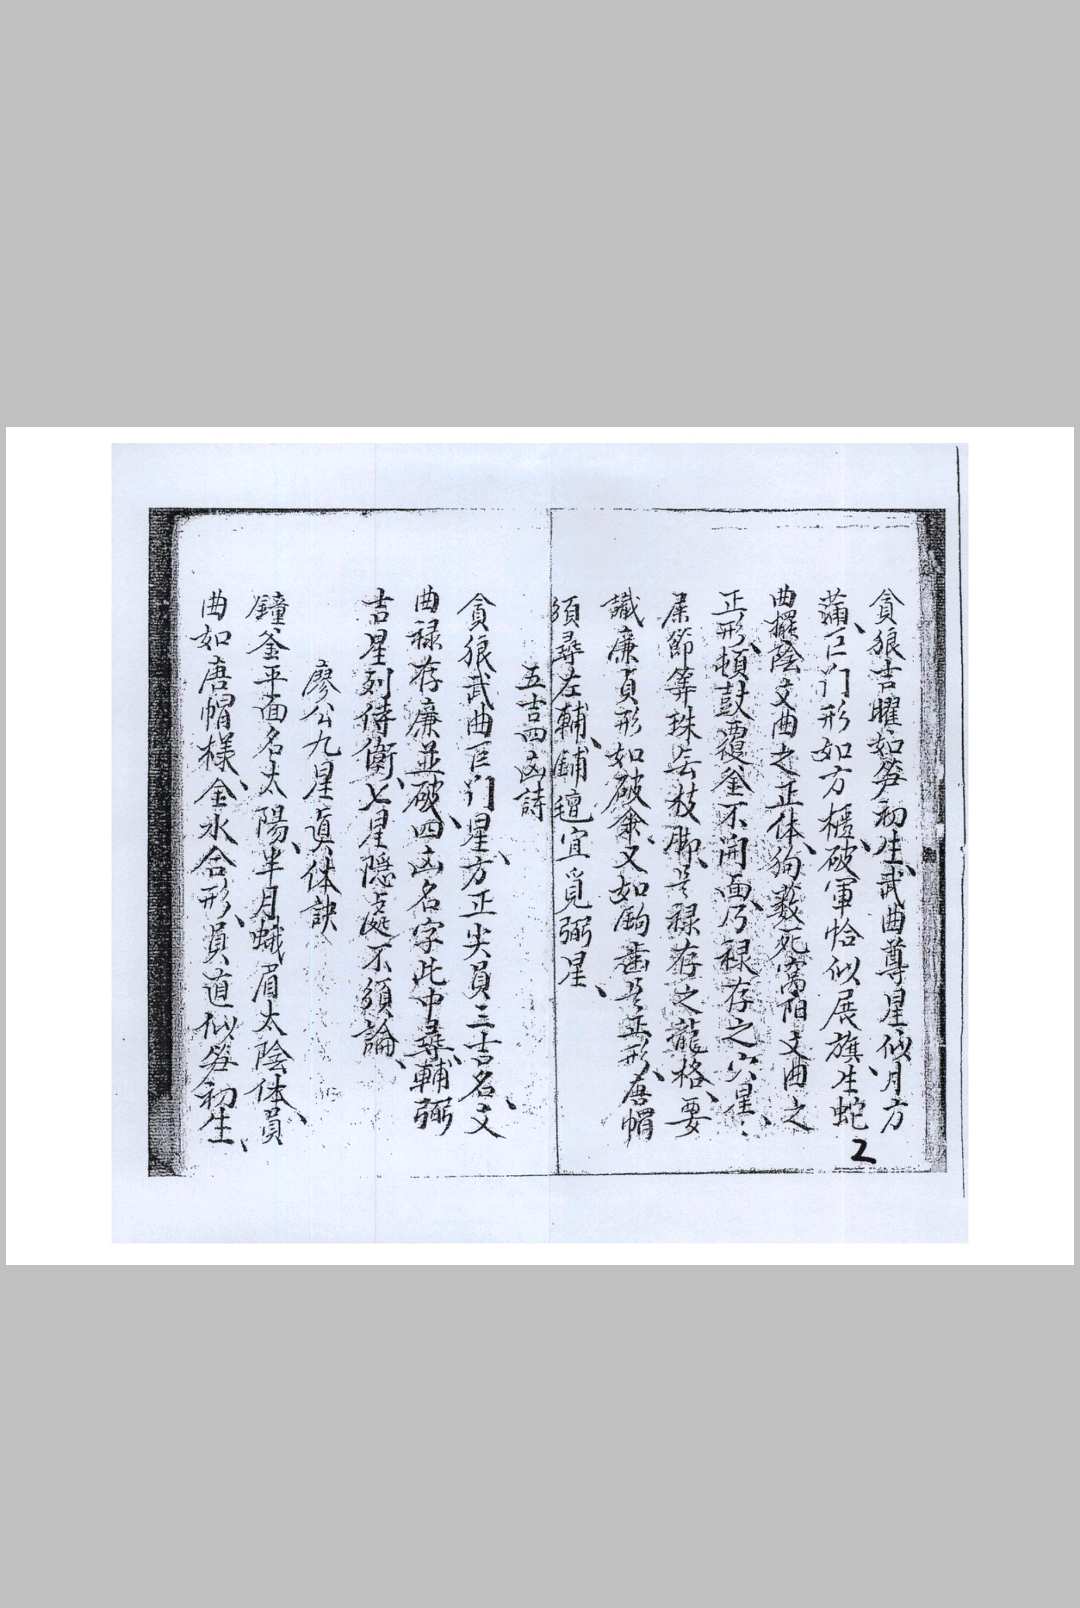 貪狼吉曜如笋初生、武曲尊星似月方
蒲、巨门形如方櫃、破軍恰似展旗、生蛇
曲擺蔭文曲之正体、狗薮死窩阳文曲之
正形、頓鼓覆釜不開面、乃禄存之穴星、
屎節算珠去枝脚、是禄存之龍格、要
識廉貞形如破傘、又如鉤齒是正形、唐帽
須尋左輔、鋪毡宜覓弼星、
五吉四凶詩
貪狼武曲巨门星、方正尖員三吉名、文
曲禄存廉並破、四凶名字此中尋、輔弼
吉星列侍衛、七星隠處不須論、
廖公九星真体訣
鐘釜平面名太陽、半月蛾眉太陰体、員
曲如唐帽樣、金水合形、員道似笋初生、
2